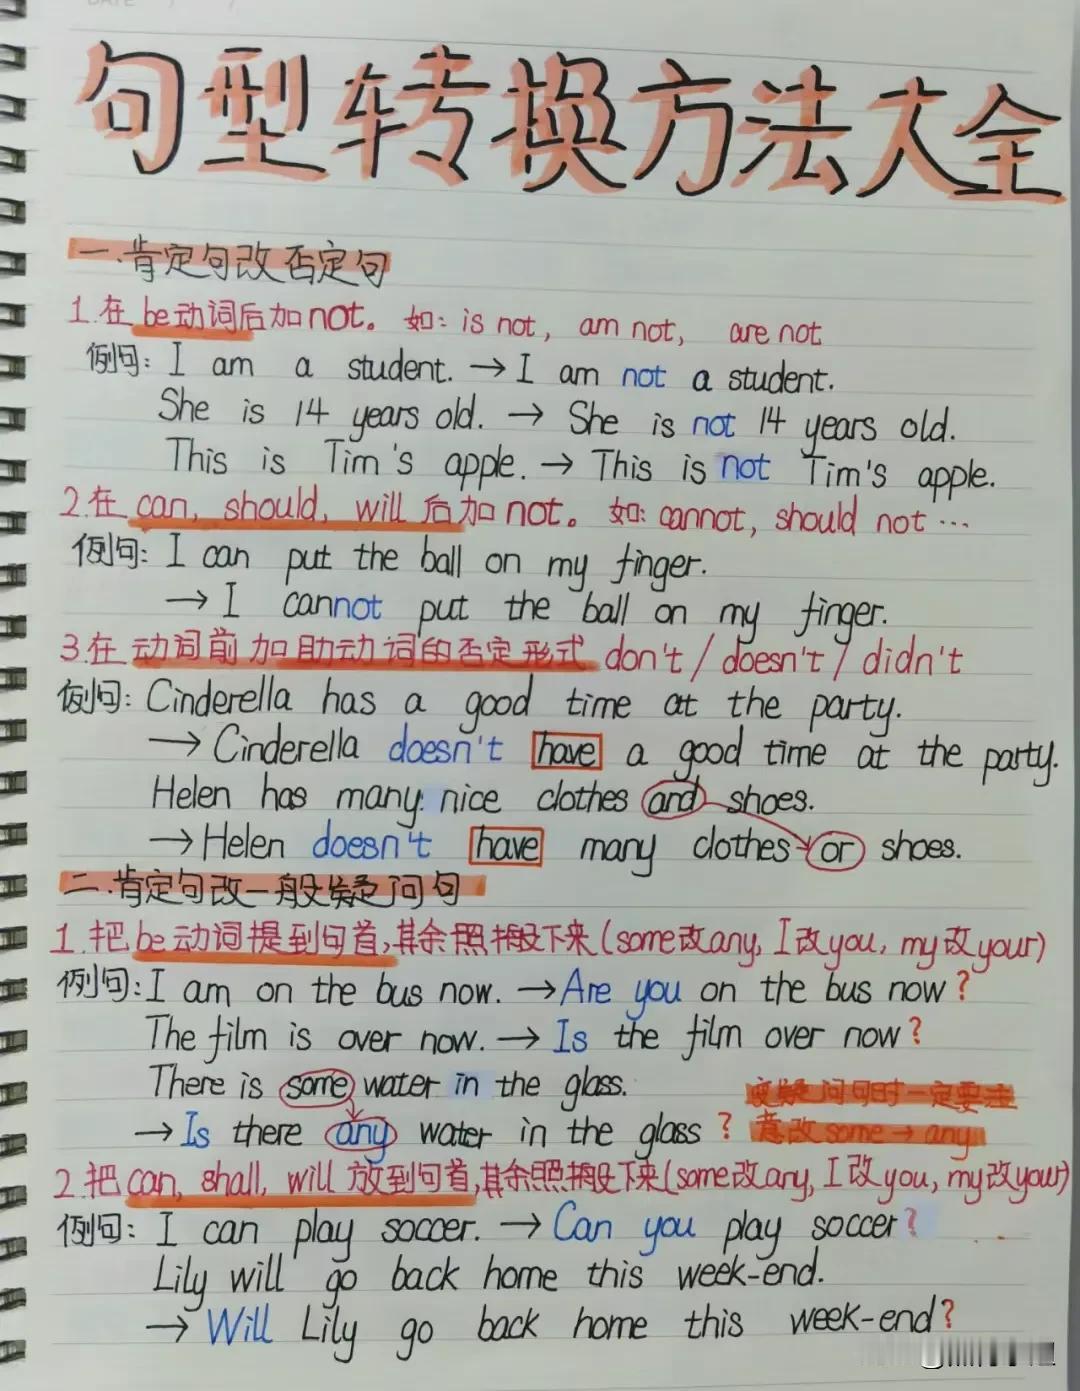 DATE
句型转换方法大全
一.肯定句改否定句
1.在be动词后加not。如：is not， am not， are not
例句：I am a student. → I am not a student.
She is 14 years old. → She is not 14 years old.
This is Tim's apple. → This is not Tim's apple.
2.在can, should, will后加not。如：cannot, should not …
例句：I can put the ball on my finger.
→ I cannot put the ball on my finger.
3.在动词前加助动词的否定形式 don't / doesn't / didn't
例句：Cinderella has a good time at the party.
→ Cinderella doesn't have a good time at the party.
Helen has many nice clothes and shoes.
→ Helen doesn't have many clothes or shoes.
二.肯定句改一般疑问句
1.把be动词提到句首,其余照搬下来(some改any, I改you, my改your)
例句：I am on the bus now. → Are you on the bus now?
The film is over now. → Is the film over now?
There is some water in the glass.
→ Is there any water in the glass?
变疑问句时一定要注
意改some→any
2.把can, shall, will放到句首,其余照搬下来(some改any, I改you, my改your)
例句：I can play soccer. → Can you play soccer?
Lily will go back home this week-end.
→ Will Lily go back home this week-end?